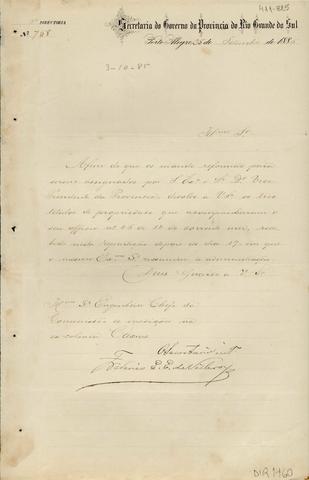 411-885
DIRECTORIA
Nº 768
Secretaria do Governo da Provincia do Rio Grande do Sul
Porto Alegre, 25 de Setembro de 1885
3-10-85
Illmo Sr.
Afim de que os mande reformar para
serem assignados por S. Exª o Sr. Dr. Vice
Presidente da Provincia, devolvo a VSª os tres
titulos de propriedade que acompanharam o
seu officio nº de 12 do corrente mez, rece
bido nesta repartição depois do dia 17, em que
o mesmo Exmo Sr. assumiu a administração.
Deus Guarde a V. Sª
Illmo Sr. Engenheiro Chefe da
Commissão de medições na
ex-colonia Caxias
O Secretario intº
DIR 1460